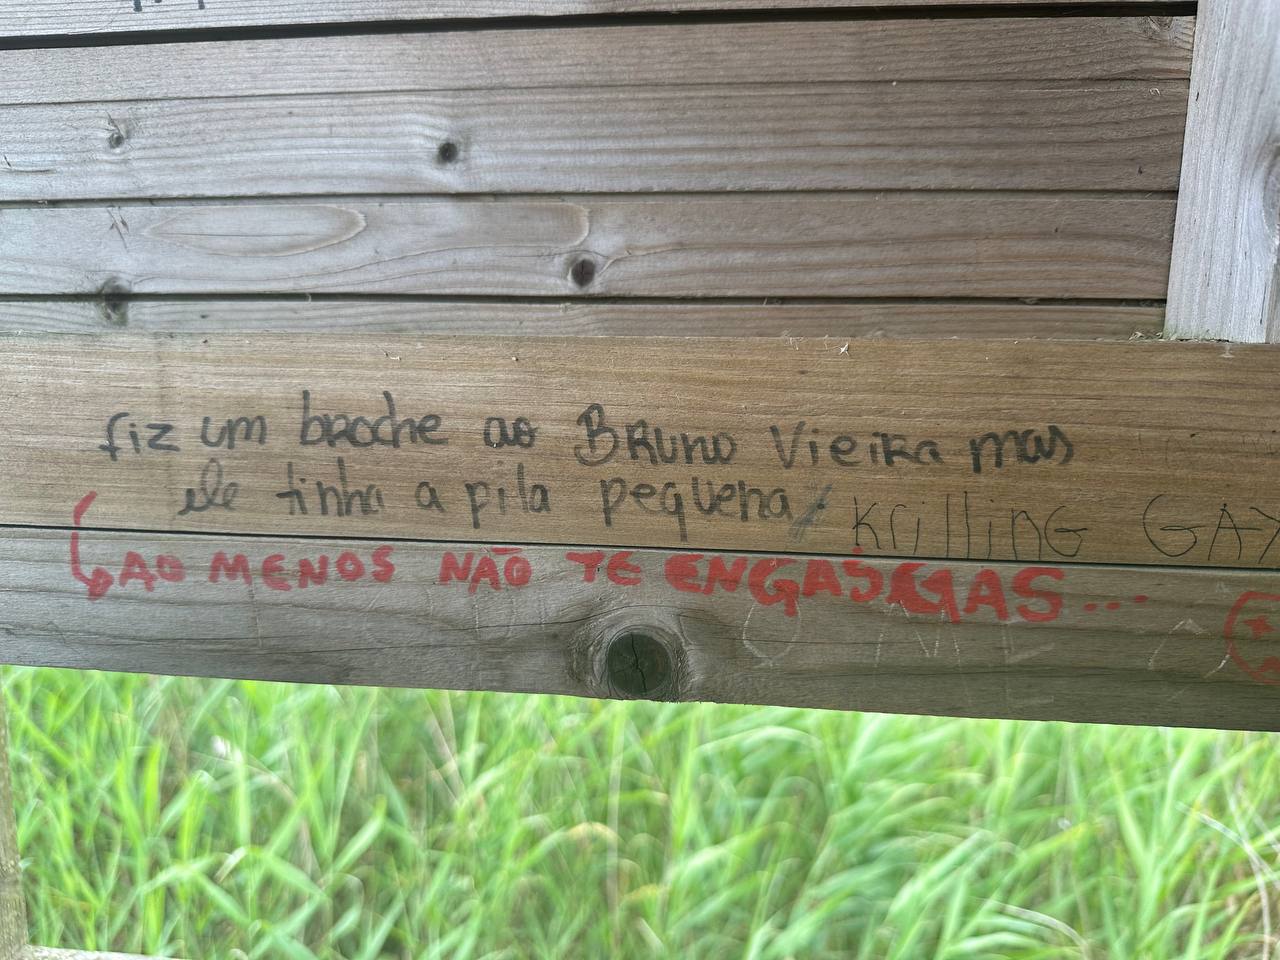 fiz um broche ao Bruno Vieira mas
ele tinha a pila pequena
Krilling GAY
AO MENOS NÃO TE ENGASGAS...